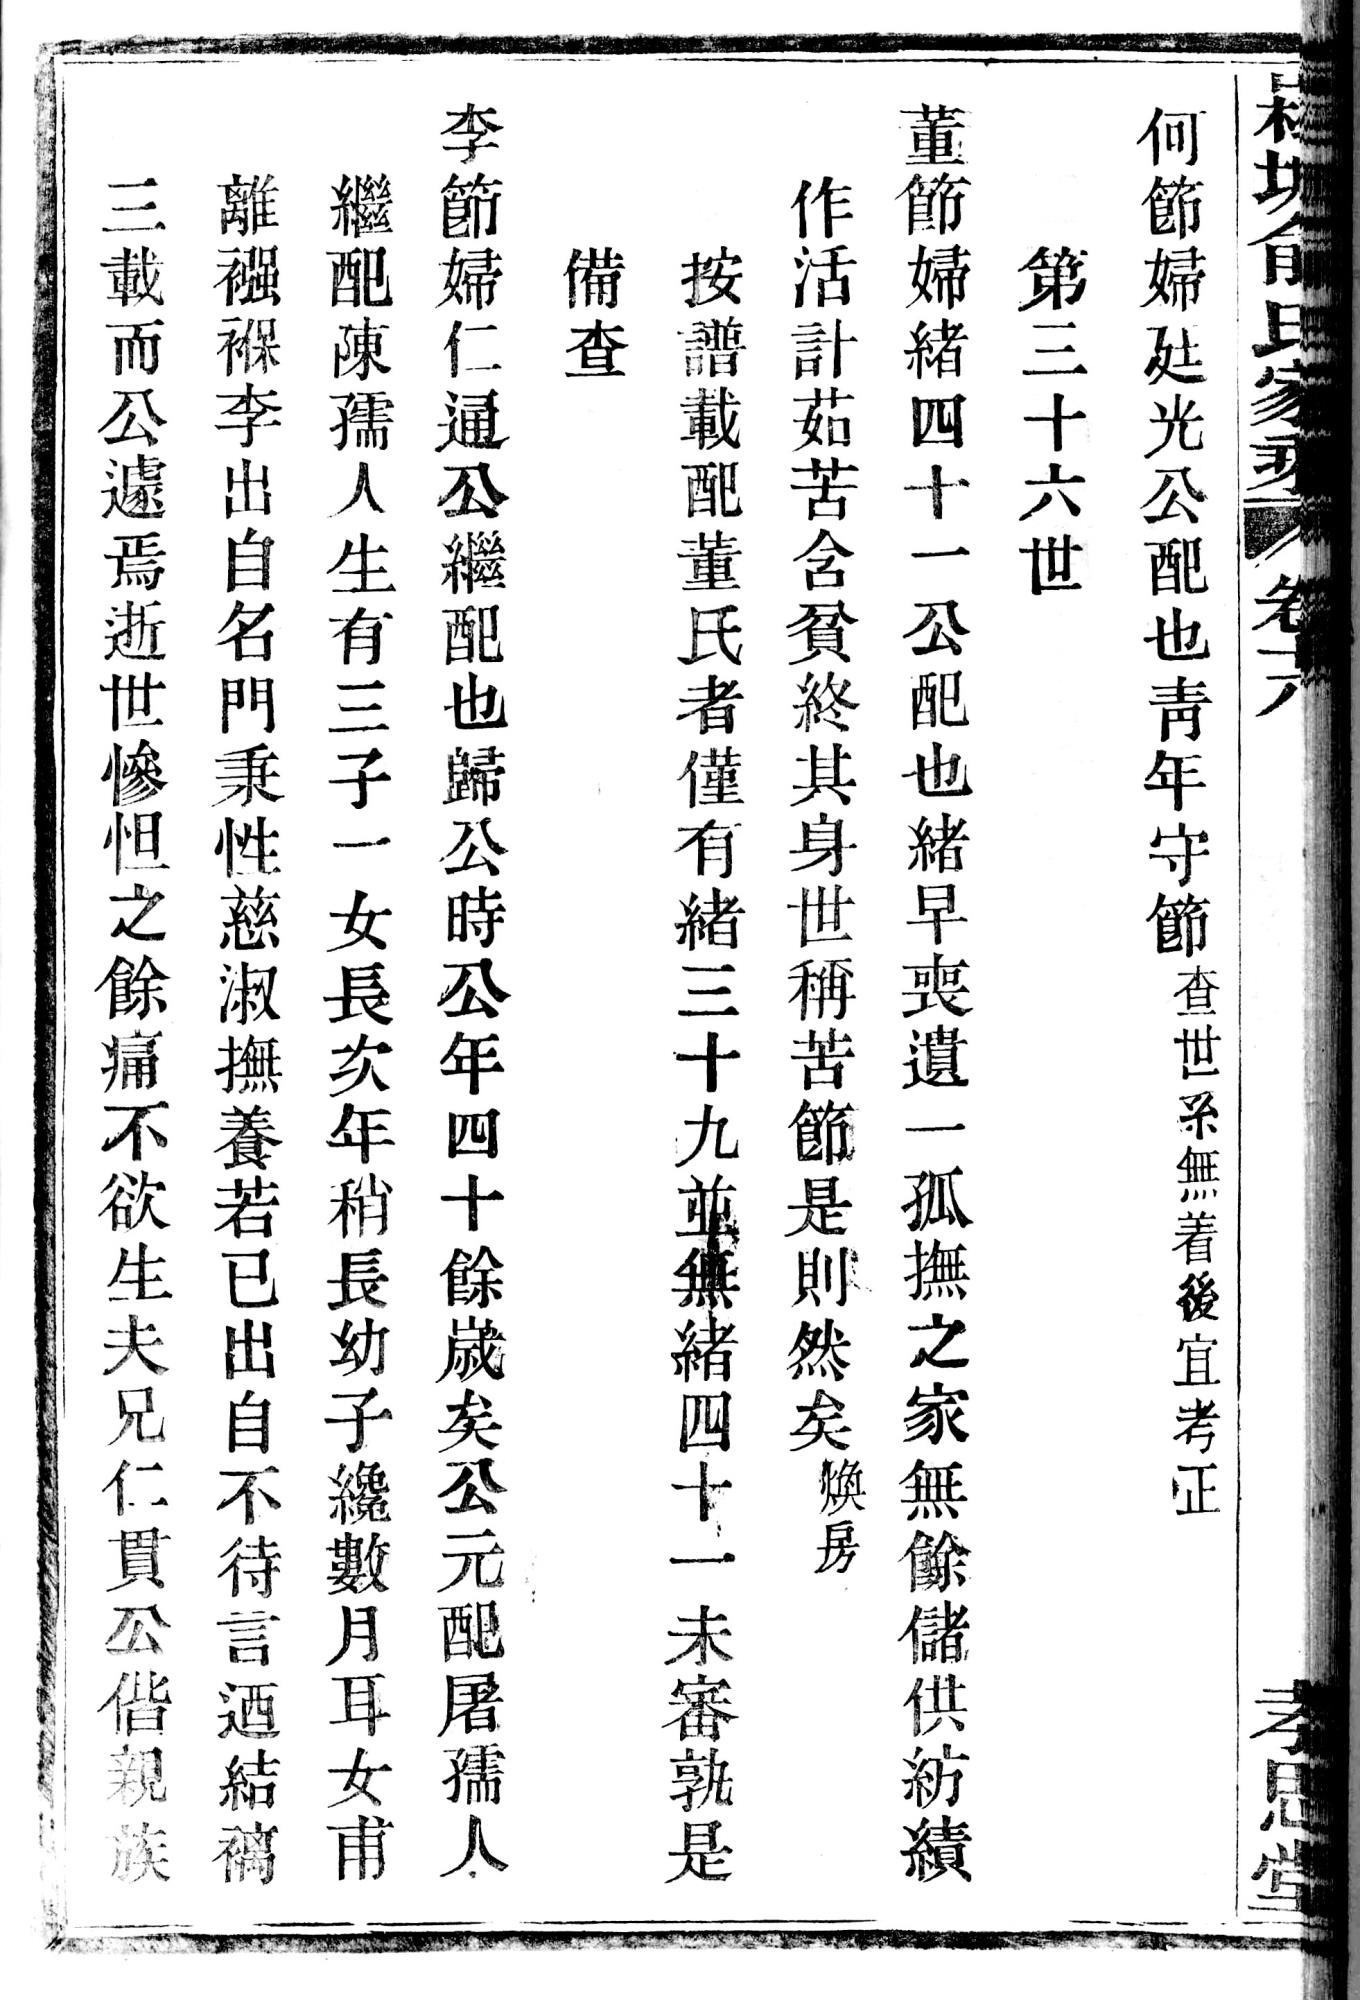 俞氏家乘 卷六 孝思堂
何節婦廷光公配也靑年守節查世系無着後宜考正
第三十六世
董節婦緒四十一公配也緒早喪遺一孤撫之家無餘儲供紡績
作活計茹苦含貧終其身世稱苦節是則然矣煥房
按譜載配董氏者僅有緒三十九並無緒四十一未審孰是
備查
李節婦仁通公繼配也歸公時公年四十餘歲矣公元配屠孺人
繼配陳孺人生有三子一女長次年稍長幼子纔數月耳女甫
離襁褓李出自名門秉性慈淑撫養若已出自不待言迺結褵
三載而公遽焉逝世慘怛之餘痛不欲生夫兄仁貫公偕親族